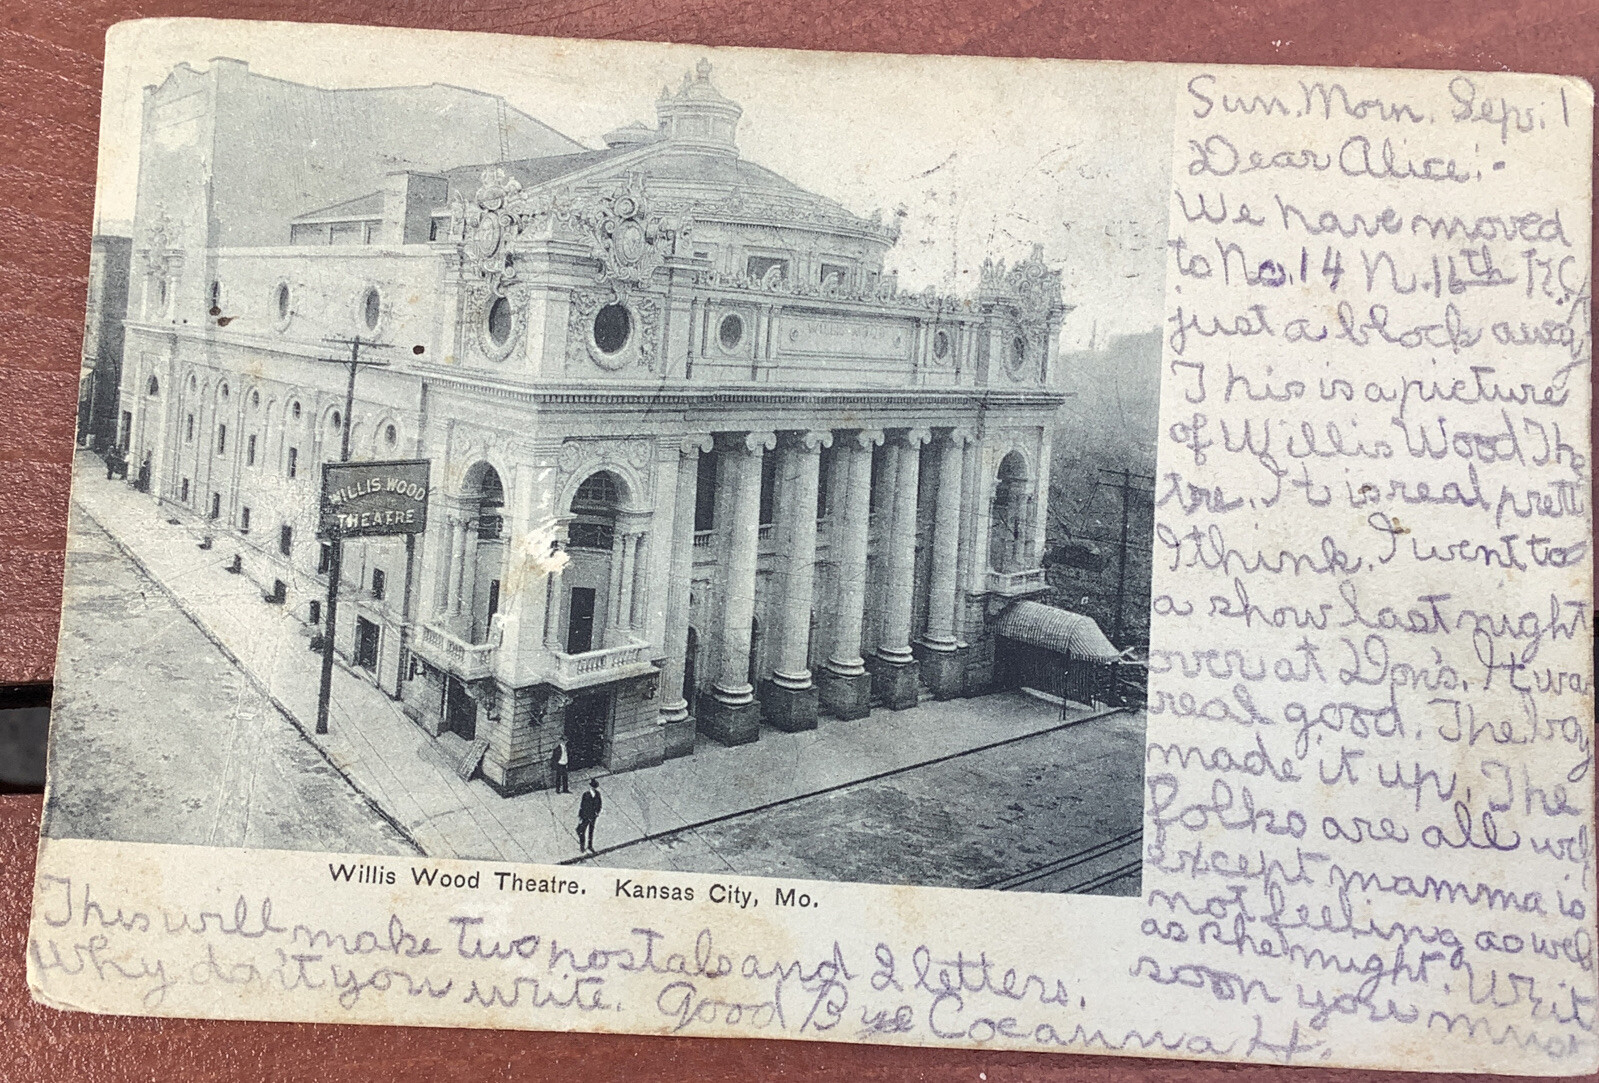 WILLIS WOOD
WILLIS WOOD
THEATRE
Willis Wood Theatre. Kansas City, Mo.
Sun. Morn. Sep. 1
Dear Alice:-
We have moved
to No. 14 N. 16th K.C.
just a block away
This is a picture
of Willis Wood The
tre. It is real pretty
I think. I went to
a show last night
over at Don's. It was
real good. The boy
made it up. The
folks are all well
except mamma is
not feeling as well
as she might. Write
soon you must
This will make two postals and 2 letters.
Why don't you write. Good Bye Cocanna H.